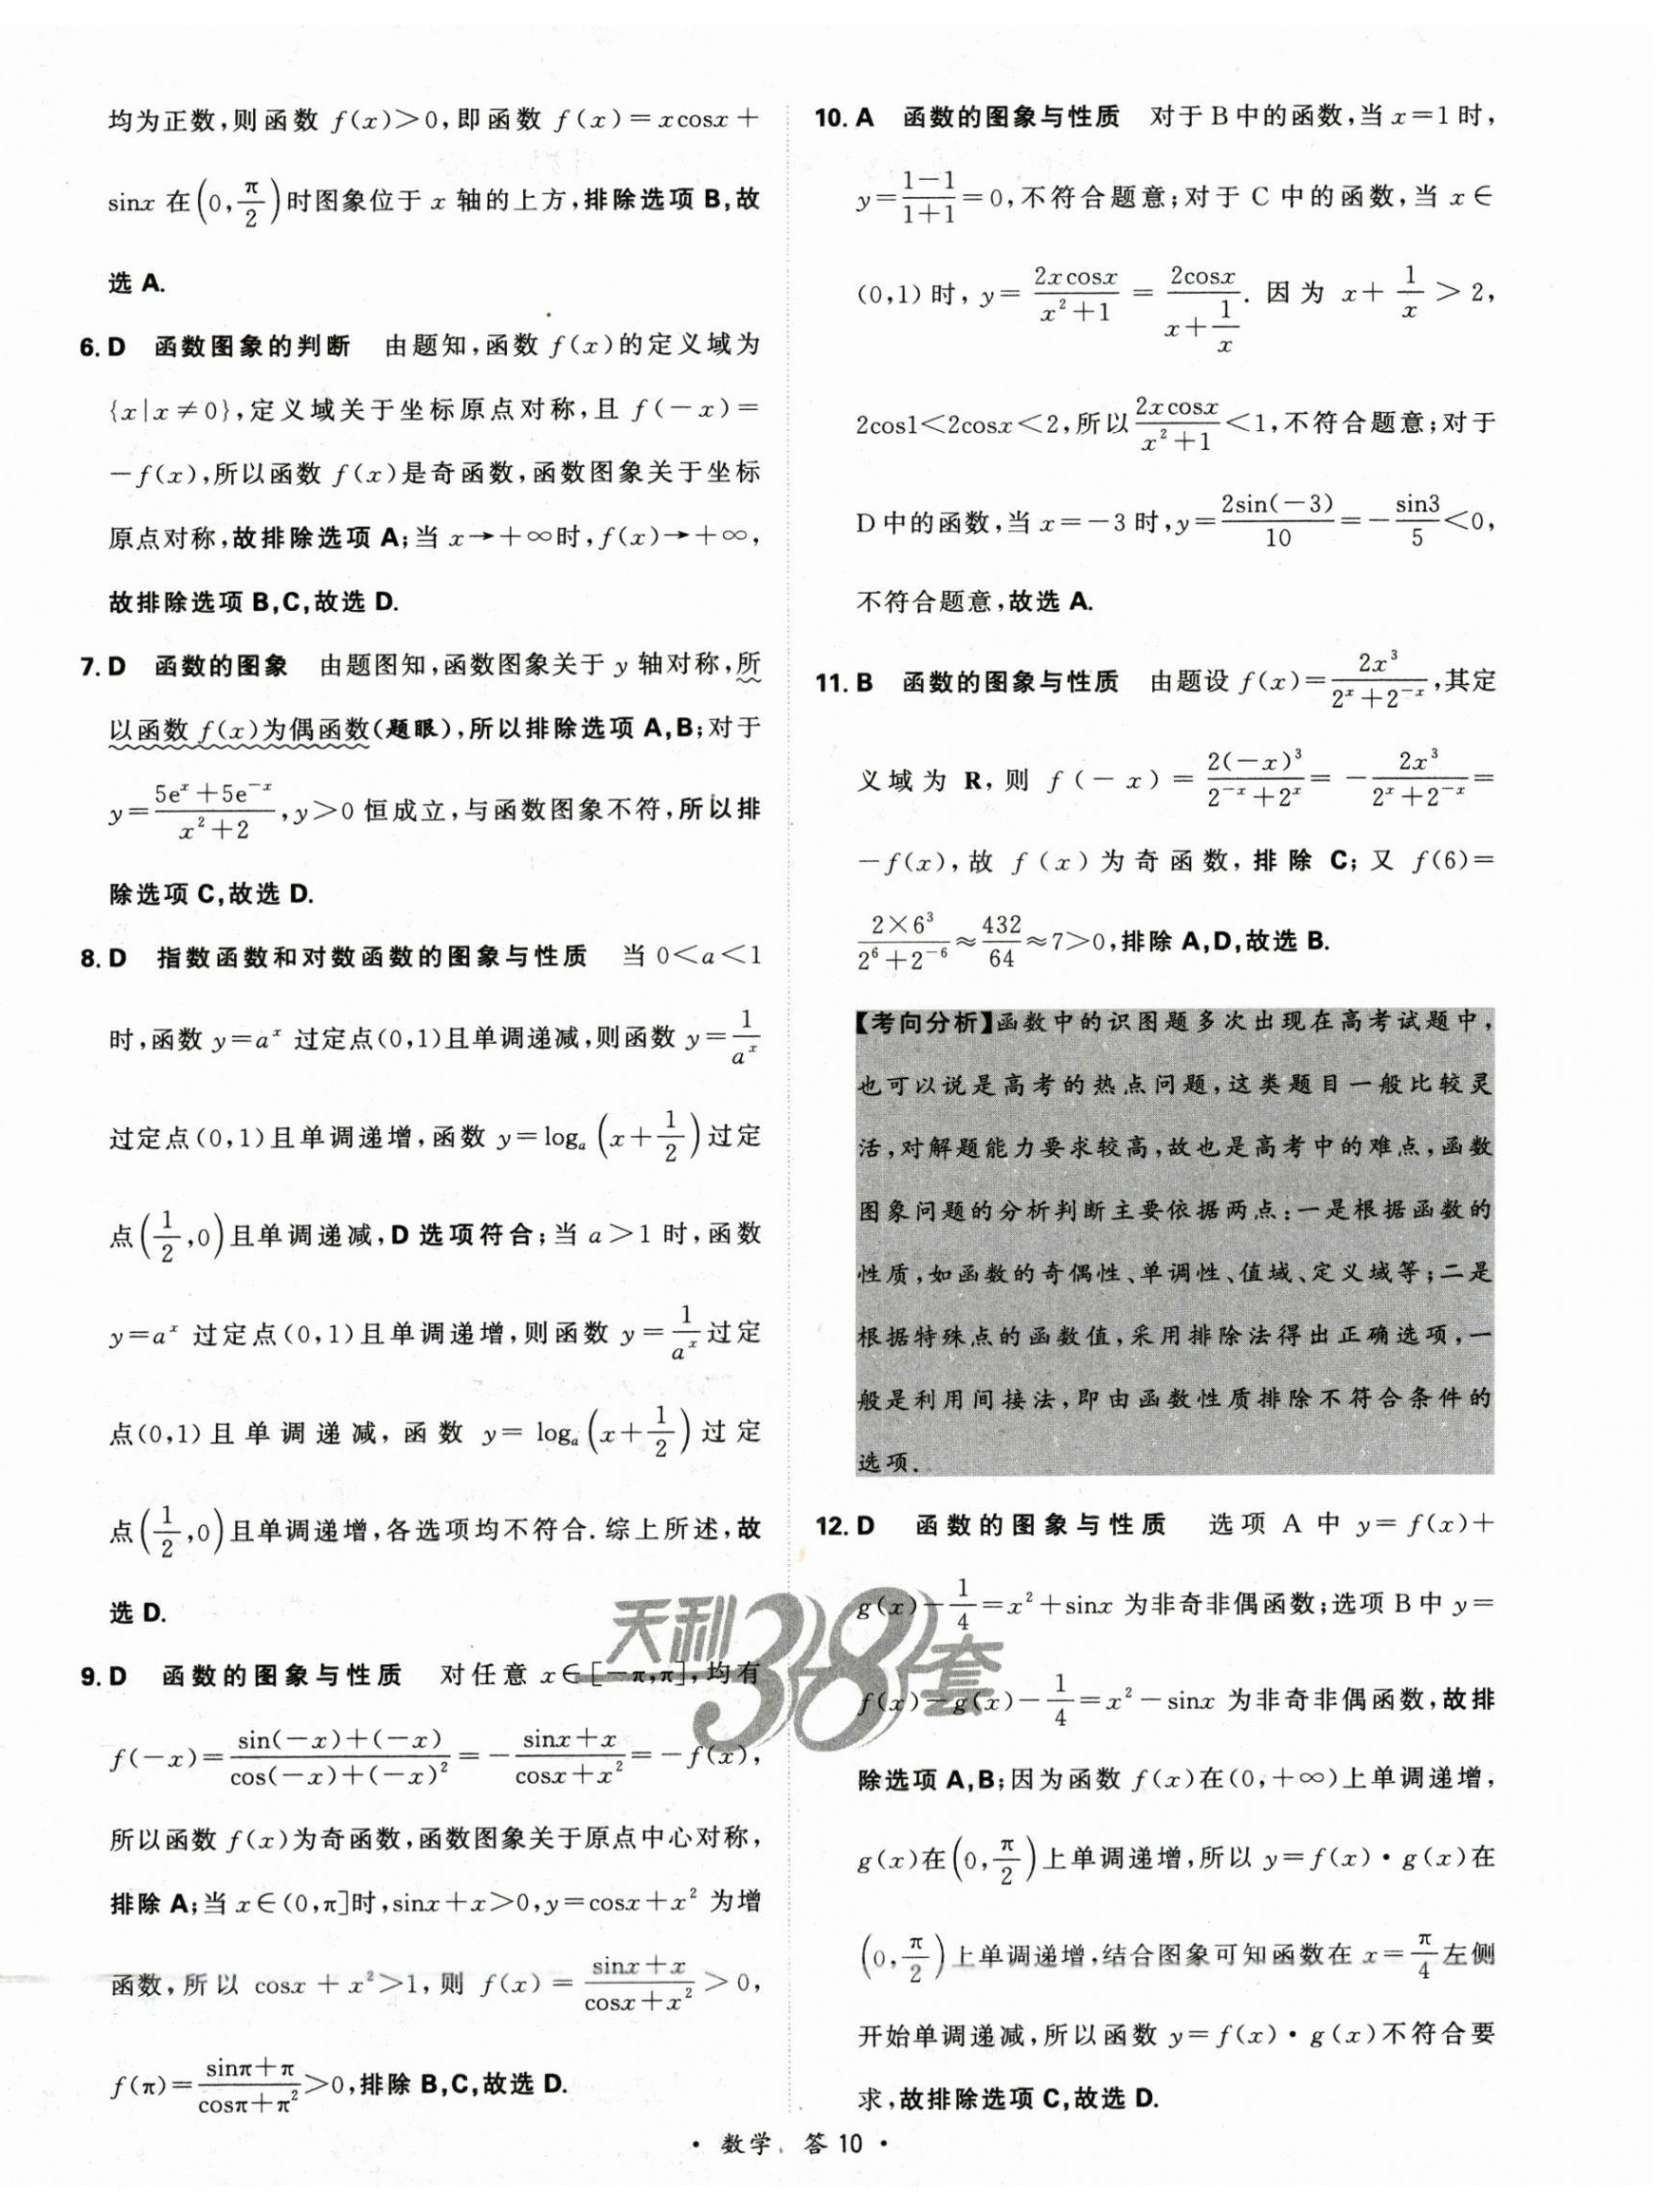 均为正数,则函数 f(x)>0,即函数 f(x)=xcosx+
sinx 在(0,π/2)时图象位于 x 轴的上方,排除选项 B,故
选 A.
6. D 函数图象的判断 由题知,函数 f(x)的定义域为
{x|x≠0},定义域关于坐标原点对称,且 f(-x)=
-f(x),所以函数 f(x)是奇函数,函数图象关于坐标
原点对称,故排除选项 A;当 x→+∞时,f(x)→+∞,
故排除选项 B,C,故选 D.
7. D 函数的图象 由题图知,函数图象关于 y 轴对称,所
以函数 f(x)为偶函数(题眼),所以排除选项 A,B;对于
y=(5eˣ+5e⁻ˣ)/(x²+2),y>0 恒成立,与函数图象不符,所以排
除选项 C,故选 D.
8. D 指数函数和对数函数的图象与性质 当 0<a<1
时,函数 y=aˣ 过定点(0,1)且单调递减,则函数 y=1/aˣ
过定点(0,1)且单调递增,函数 y=logₐ(x+1/2)过定
点(1/2,0)且单调递减,D 选项符合;当 a>1 时,函数
y=aˣ 过定点(0,1)且单调递增,则函数 y=1/aˣ过定
点(0,1)且单调递减,函数 y=logₐ(x+1/2)过定
点(1/2,0)且单调递增,各选项均不符合.综上所述,故
选 D.
9. D 函数的图象与性质 对任意 x∈[-π,π],均有
f(-x)=(sin(-x)+(-x))/(cos(-x)+(-x)²)=-(sinx+x)/(cosx+x²)=-f(x),
所以函数 f(x)为奇函数,函数图象关于原点中心对称,
排除 A;当 x∈(0,π]时,sinx+x>0,y=cosx+x² 为增
函数,所以 cosx+x²>1,则 f(x)=(sinx+x)/(cosx+x²)>0,
f(π)=(sinπ+π)/(cosπ+π²)>0,排除 B,C,故选 D.
10. A 函数的图象与性质 对于 B 中的函数,当 x=1 时,
y=(1-1)/(1+1)=0,不符合题意;对于 C 中的函数,当 x∈
(0,1)时,y=2xcosx/(x²+1)=2cosx/(x+1/x).因为 x+1/x>2,
2cos1<2cosx<2,所以2xcosx/(x²+1)<1,不符合题意;对于
D 中的函数,当 x=-3 时,y=2sin(-3)/10=-sin3/5<0,
不符合题意,故选 A.
11. B 函数的图象与性质 由题设 f(x)=2x³/(2ˣ+2⁻ˣ),其定
义域为 R,则 f(-x)=2(-x)³/(2⁻ˣ+2ˣ)=-2x³/(2ˣ+2⁻ˣ)=
-f(x),故 f(x)为奇函数,排除 C;又 f(6)=
(2×6³)/(2⁶+2⁻⁶)≈432/64≈7>0,排除 A,D,故选 B.
【考向分析】函数中的识图题多次出现在高考试题中,
也可以说是高考的热点问题,这类题目一般比较灵
活,对解题能力要求较高,故也是高考中的难点,函数
图象问题的分析判断主要依据两点:一是根据函数的
性质,如函数的奇偶性、单调性、值域、定义域等;二是
根据特殊点的函数值,采用排除法得出正确选项,一
般是利用间接法,即由函数性质排除不符合条件的
选项.
12. D 函数的图象与性质 选项 A 中 y=f(x)+
g(x)-1/4=x²+sinx 为非奇非偶函数;选项 B 中 y=
f(x)-g(x)-1/4=x²-sinx 为非奇非偶函数,故排
除选项 A,B;因为函数 f(x)在(0,+∞)上单调递增,
g(x)在(0,π/2)上单调递增,所以 y=f(x)·g(x)在
(0,π/2)上单调递增,结合图象可知函数在 x=π/4左侧
开始单调递减,所以函数 y=f(x)·g(x)不符合要
求,故排除选项 C,故选 D.
天利38套
· 数学 答 10 ·